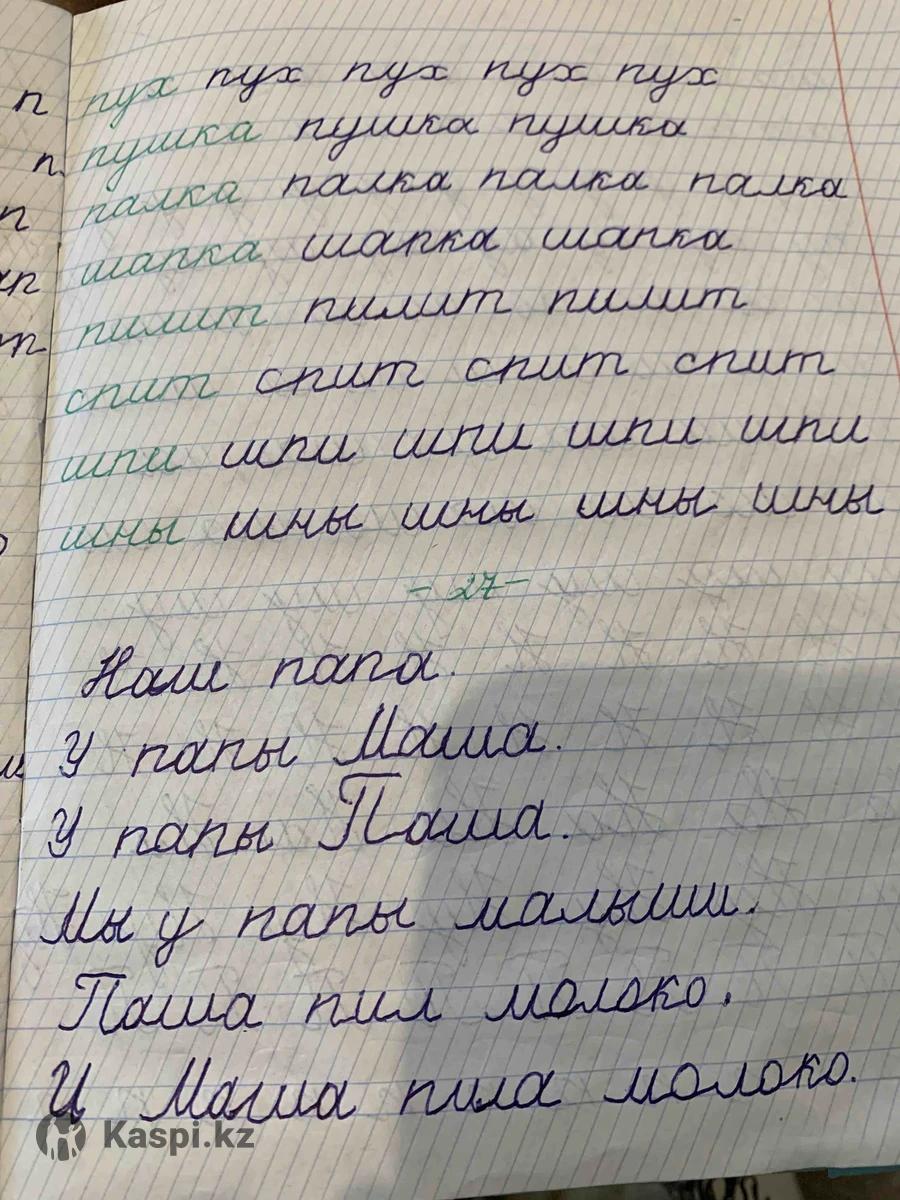 пух пух пух пух пух
пушка пушка пушка
палка палка палка палка
шапка шапка шапка
пилит пилит пилит
спит спит спит спит
шпи шпи шпи шпи шпи
шны шны шны шны шны
- 27 -
Наш папа.
У папы Маша.
У папы Паша.
Мы у папы малыши.
Паша пил молоко.
И Маша пила молоко.
Kaspi.kz